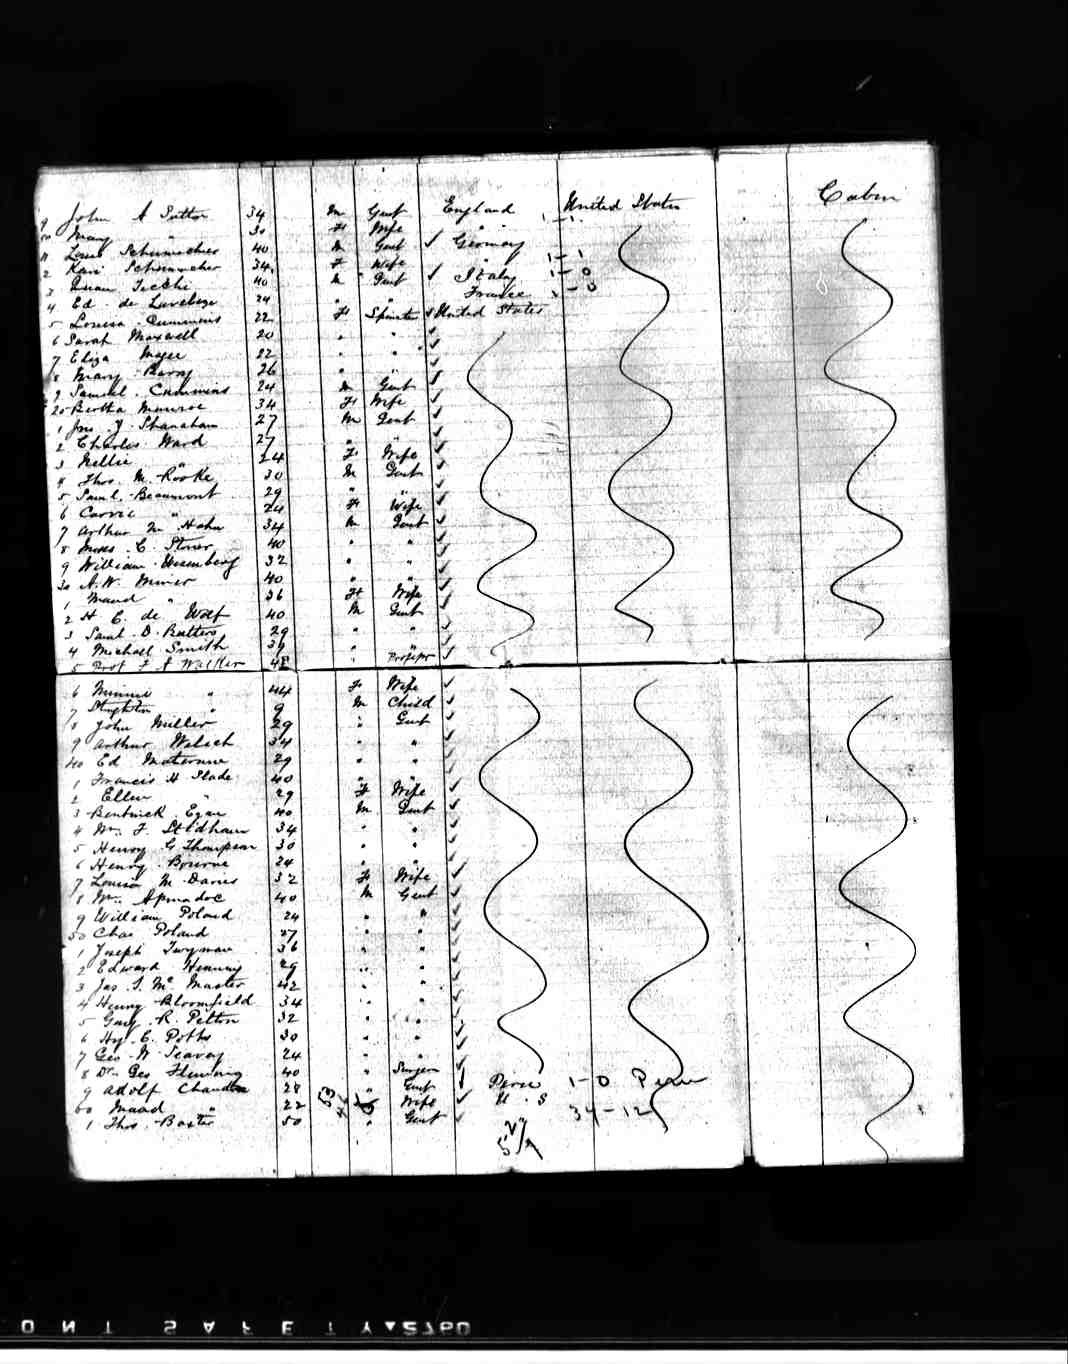 Cabin
9 John A Sutton 34 M Gent England United States
10 Mary " 30 F Wife " 1-1
11 Louis Schumacher 40 M Gent ✓ Germany "
2 Kari Schumacher 34 F Wife 1-1
3 Juan Tecchi 40 M Gent ✓ Italy 1-0
4 Ed. de Laveleye 24 " " France 1-0
5 Louisa Cummins 22 F Spinster ✓ United States
6 Sarah Maxwell 20 " " ✓
7 Eliza Magee 22 " " ✓
8 Mary Barry 26 " " ✓
9 Samuel Cummins 24 M Gent ✓
20 Bertha Munroe 34 F Wife ✓
1 Jno. J. Shanahan 27 M Gent ✓
2 Charles Ward 27 " " ✓
3 Nellie " 24 F Wife ✓
4 Thos. M. Rooke 30 M Gent ✓
5 Saml. Beaumont 29 " " ✓
6 Carrie " 24 F Wife ✓
7 Arthur M Hahn 34 M Gent ✓
8 Moses C. Stoner 40 " " ✓
9 William 32 " " ✓
30 A. W. Minor 40 " " ✓
1 Maud " 36 F Wife ✓
2 H C. de Wolf 40 M Gent ✓
3 Saml. D. Butters 29 " " ✓
4 Michael Smith 39 " " ✓
5 Prof F A Walker 48 " Professor ✓
6 Minnie " 44 F Wife ✓
7 " 9 M Child ✓
8 John Miller 29 " Gent ✓
9 Arthur Walsch 34 " " ✓
40 Ed 29 " " ✓
1 Francis H Slade 40 " " ✓
2 Ellen " 29 F Wife ✓
3 Bentwick Egan 40 M Gent ✓
4 Wm. F. Stidham 34 " " ✓
5 Henry G Thompson 30 " " ✓
6 Henry Bourne 24 " " ✓
7 Louisa M. Davies 32 F Wife ✓
8 Mr. Apmadoc 40 M Gent ✓
9 William Poland 24 " " ✓
50 Chas Poland 37 " " ✓
1 Joseph Twyman 36 " " ✓
2 Edward Henning 29 " " ✓
3 Jas. T. Mc Master 42 " " ✓
4 Henry Bloomfield 34 " " ✓
5 Guy R. Pelton 32 " " ✓
6 Hy. C. Potts 30 " " ✓
7 Geo. W. Seavey 24 " " ✓
8 Dr. Geo Fleming 40 " Surgeon ✓
9 Adolf Chanden 28 " Gent ✓ Peru 1-0 Peru
60 Maud " 22 Wife ✓ U. S 34-12
1 Thos. Baxter 50 " Gent ✓
53
ONT SAFETY▲2760